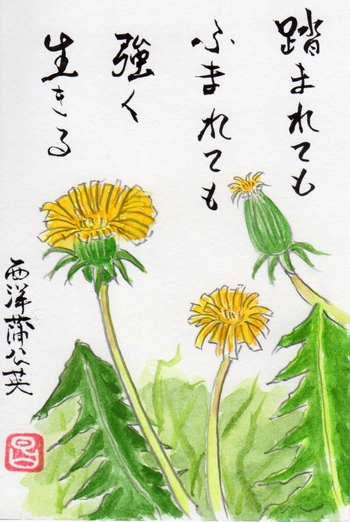 踏まれても
ふまれても
強く
生きる
西洋蒲公英